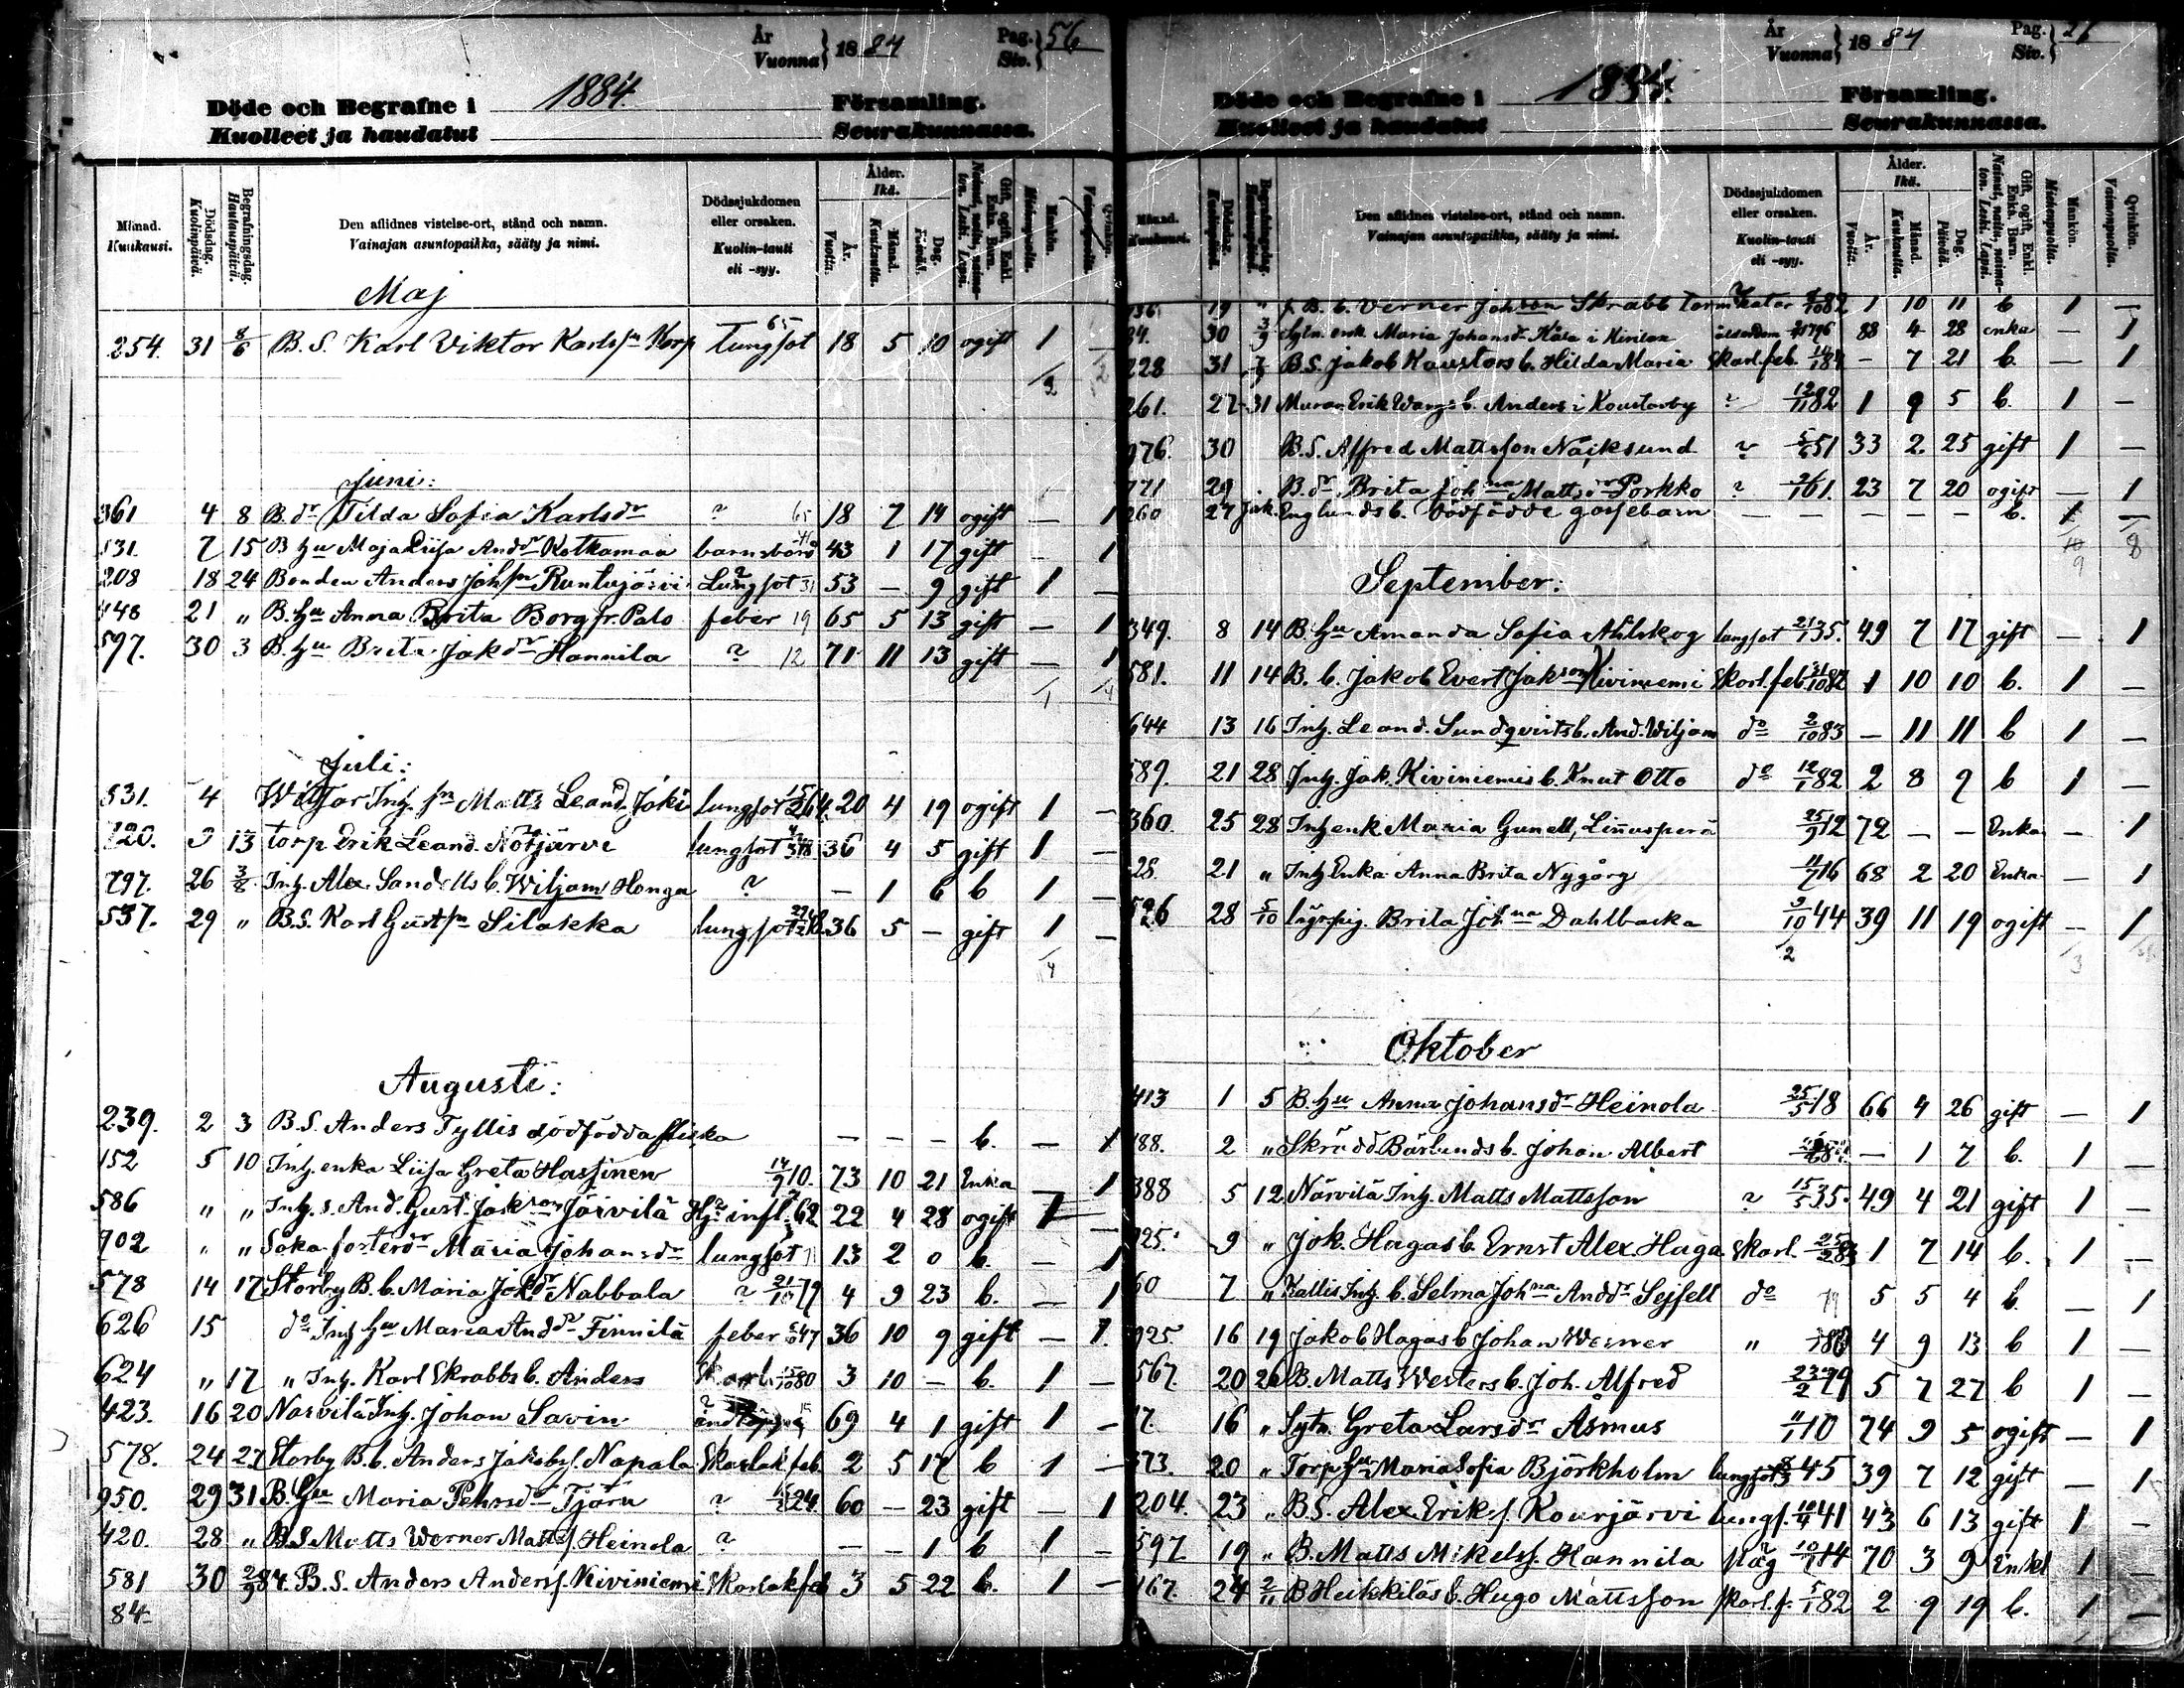 År Vuonna } 1884 Pag. Siv. } 56
Döde och Begrafne i 1884. Församling.
Kuolleet ja haudatut Seurakunnassa.
Månad. Kuukausi. Dödsdag. Kuolinpäivä. Begrafningsdag. Hautauspäivä. Den aflidnes vistelse-ort, stånd och namn. Vainajan asuntopaikka, sääty ja nimi. Dödssjukdomen eller orsaken. Kuolin-tauti eli -syy. Ålder. Ikä. År. Vuotta. Månad. Kuukautta. Dag. Päivää. Gift, ogift, Enkl. Enka. Barn. Mankön. Miehenpuolta. Qvinkön. Vaimonpuolta.
Maj
254. 31 8/6 B. S. Karl Viktor Karlssn Korp Lungsot 65 18 5 10 ogift 1 –
2
Juni:
361 4 8 B. dr Tilda Sofia Karlsdr ? 65 18 7 14 ogift – 1
131. 7 15 B hu Maja Liisa Anddr Kotkamaa barnsbörd 41 43 1 17 gift – 1
208 18 24 Bonden Anders Johssn Runtujärvi Lungsot 31 53 – 9 gift 1 –
448 21 " B. hu Anna Brita Borg fr. Palo feber 19 65 5 13 gift – 1
597. 30 3 B. hu Brita Jakdr Hannila ? 12 71 11 13 gift – 1
1 4
Juli:
531. 4 Inh. sn Matts Leand. Joki lungsot 64. 20 4 19 ogift 1 –
720. 9 13 torp Erik Leand. Nötjärvi lungsot 36 4 5 gift 1 –
797. 26 3/8 Inh. Alex Sandells b. Wiljam Honga ? – 1 6 b 1 –
537. 29 " B. S. Karl Gustsn Silakka lungsot 48. 36 5 – gift 1 –
4
Augusti:
239. 2 3 B. S. Anders Tyllis dödfödda flicka – – – b. – 1
152 5 10 Inh. enka Liisa Greta Hassinen 14/9 10. 73 10 21 Enka – 1
586 " " Inh. s. And. Gust. Jakson Järvilä Hj. infl. 62 22 4 28 ogift 1 –
902 " " Såka fosterdr Maria Johansdr lungsot 71 13 2 0 b. – 1
578 14 17 Storby B. b. Maria Jakdr Nabbala ? 21/10 79 4 9 23 b. – 1
626 15 do Inh hu Maria Anddr Finnilä feber 47 36 10 9 gift – 1.
624 " 17 " Inh. Karl Skrabbs b. Anders Skarl. 15/10 80 3 10 – b. 1 –
423. 16 20 Närvilä Inh. Johan Savin 15 69 4 1 gift 1 –
578. 24 27 Storby B. b. Anders Jakobs. Napala Skarlak feb. 2 5 17 b 1 –
950. 29 31 B. hu Maria Pehrsdr Tjäru ? 24 60 – 23 gift – 1
420. 28 " B. S Matts Werner Matts. Heinola ? – – 1 b 1
581 30 2/9 84. B. S. Anders Anders. Kiviniemi Skarlak feb 3 5 22 b. 1 –
84
År Vuonna } 1884 Pag. Siv. } 26
Döde och Begrafne i 1884. Församling.
Kuolleet ja haudatut Seurakunnassa.
Månad. Kuukausi. Dödsdag. Kuolinpäivä. Begrafningsdag. Hautauspäivä. Den aflidnes vistelse-ort, stånd och namn. Vainajan asuntopaikka, sääty ja nimi. Dödssjukdomen eller orsaken. Kuolin-tauti eli -syy. Ålder. Ikä. År. Vuotta. Månad. Kuukautta. Dag. Päivää. Gift, ogift, Enkl. Enka. Barn. Mankön. Miehenpuolta. Qvinkön. Vaimonpuolta.
19 " B. b. Verner Johson Skrabb 82 1 10 11 b 1 –
84. 30 3/9 Sytn. enk. Maria Johansdr Kåla i ålderdom 1796 88 4 28 enka – 1
228 31 7/9 B. S. Jakob Kaustars b. Hilda Maria Skarl. feb. 84 – 7 21 b. – 1
261. 27 31 Murar. Erik Wargs b. Anders i Koustarby ? 12/11 82 1 9 5 b. 1 –
976. 30 B. S. Alfred Mattsson Näcksund ? 5/6 51 33 2 25 gift 1 –
771 29 B. dr Brita Johna Mattsdr Porkko ? 61 23 7 20 ogift – 1
260 27 Jak. Englunds b. dödfödde gossebarn – – – – b. 1 –
10 9 8
September:
349. 8 14 B. hu Amanda Sofia Ahlskog lungsot 21/1 35. 49 7 17 gift – 1
581. 11 14 B. b. Jakob Evert Jakson Kiviniemi Skarl. feb 31/10 82 1 10 10 b. 1 –
644 13 16 Inh. Leand. Sundqvists b. And. Wiljam do 2/10 83 – 11 11 b 1 –
589. 21 28 Inh. Jak. Kiviniemis b. Knut Otto do 12/1 82 2 8 9 b 1 –
360. 25 28 Inh enk Maria Gunell, Linusperä 25/9 12 72 – – Enka – 1
28. 21 " Inh Enka Anna Brita Nygårg 16 68 2 20 Enka – 1
526 28 5/10 Brita Johna Dahlbacka 9/10 44 39 11 19 ogift – 1
2 3
Oktober
413 1 5 B. hu Anna Johansdr Heinola 25/5 18 66 4 26 gift – 1
188. 2 " Skrädd. Bärlunds b. Johan Albert – 1 7 b. 1 –
388 5 12 Närvilä Inh. Matts Mattsson ? 15/5 35. 49 4 21 gift 1 –
925. 9 " Jak. Hagas b. Ernst Alex. Haga Skarl. 25/2 83 1 7 14 b. 1 –
60 7 " Kallis Inh. b. Selma Johna Anddr Sejfell do 79 5 5 4 b. – 1
925. 16 19 Jakob Hagas b Johan Werner " 80 4 9 13 b 1 –
567. 20 26 B. Matts Westers b. Joh. Alfred 23/2 79 5 7 27 b 1 –
7. 16 " Sytn. Greta Larsdr Åsmus 10 74 9 5 ogift – 1
573. 20 " Torp hu Maria Sofia Björkholm lungsot 45 39 7 12 gift – 1
204. 23 " B. S. Alex. Eriks. Kourjärvi lungs. 10/4 41 43 6 13 gift 1 –
597 19 " B. Matts Mikelss. Hannila slag 10/7 14 70 3 9 Enkl 1 –
167. 24 2/11 B Heikkiläs b. Hugo Mattsson skarl. f. 5/1 82 2 9 19 b. 1 –